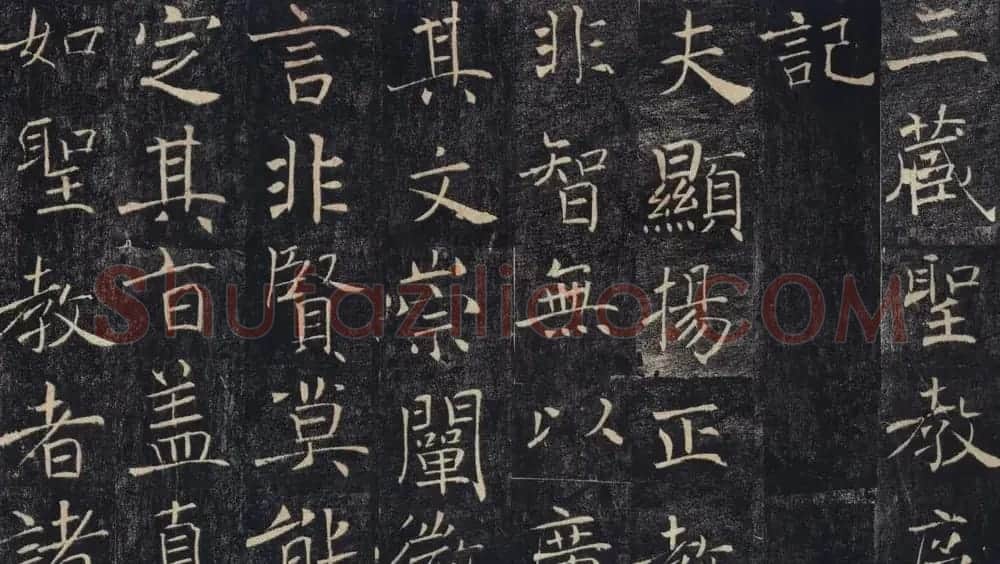 三藏聖教序
記
夫顯揚正教
非智無以廣
其文崇闡微
言非賢莫能
定其旨蓋真
如聖教者諸
Shufaziliao.COM